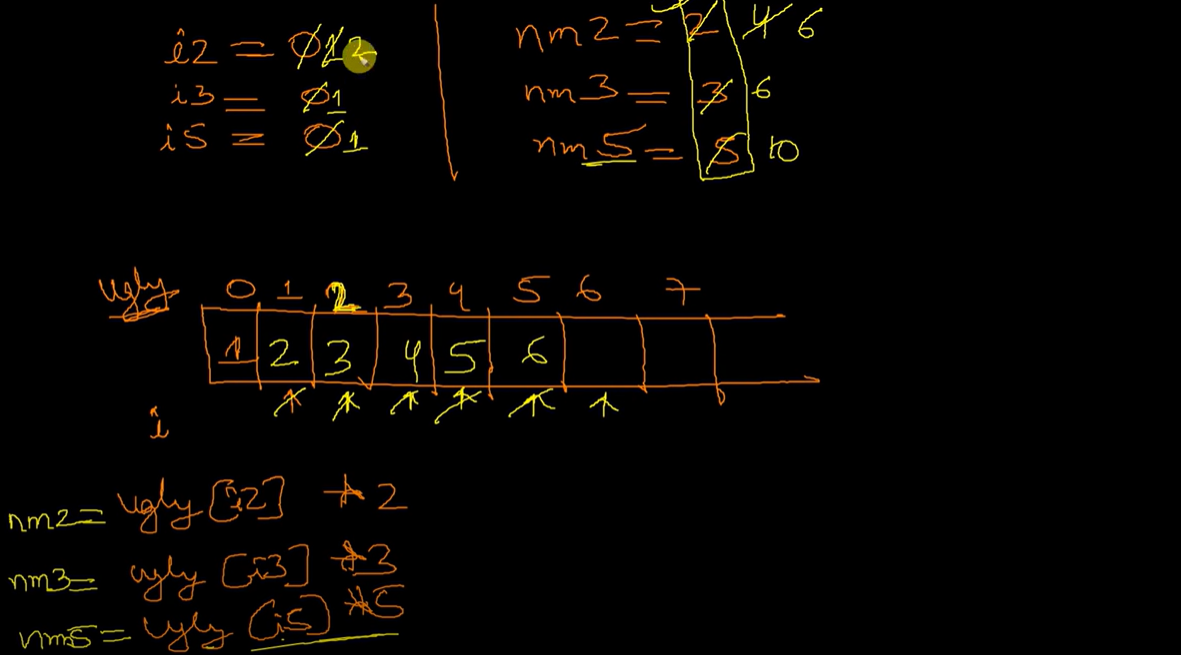 i2 = 0 1 2
nm2 = 2 4 6
i3 = 0 1
nm3 = 3 6
i5 = 0 1
nm5 = 5 10
ugly 0 1 2 3 4 5 6 7
1 2 3 4 5 6
i
nm2= ugly [i2] * 2
nm3= ugly [i3] * 3
nm5= ugly [i5] * 5